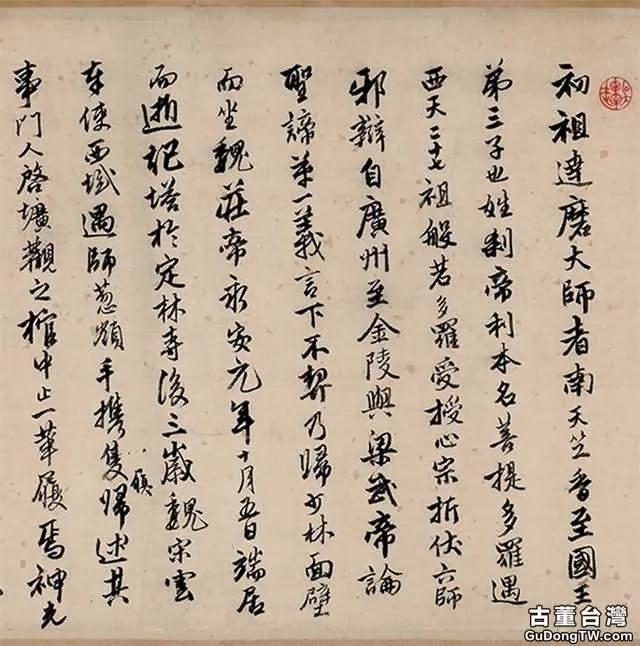 初祖達磨大師者南天竺香至國王
第三子也姓刹帝利本名菩提多羅遇
西天二十七祖般若多羅受授心宗折伏六師
邪辯自廣州至金陵與梁武帝論
聖諦第一義言下不契乃歸少林面壁
而坐魏莊帝永安元年十月五日端居
而逝祀塔於定林寺後三歲魏宋雲
奉使西域遇師葱嶺手携隻履歸述其
事門人啓壙觀之棺中止一革履焉神光
古董台灣
GuDongTW.com